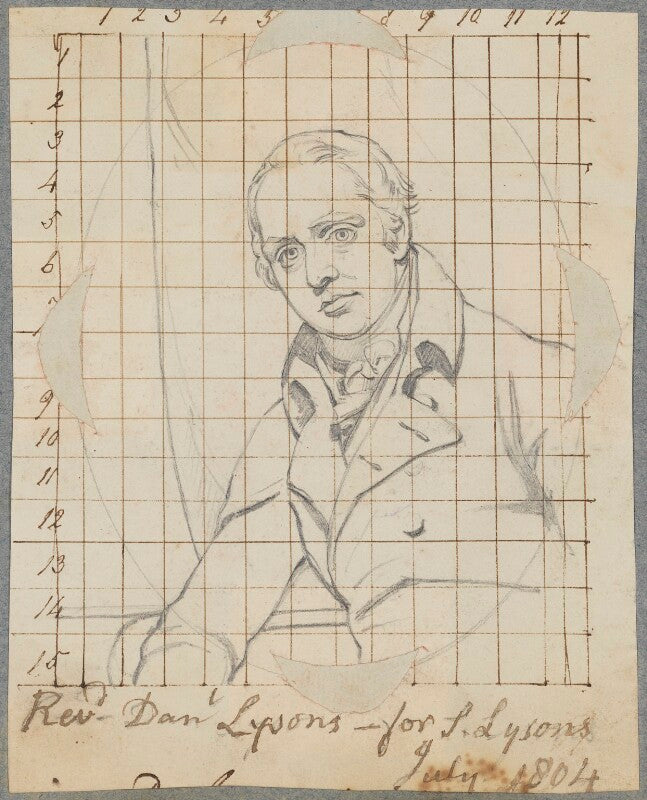 1 2 3 4 5 8 9 10 11 12
1
2
3
4
5
6
7
9
10
11
12
13
14
15
Revd Danl Lysons - for S. Lysons
July 1804